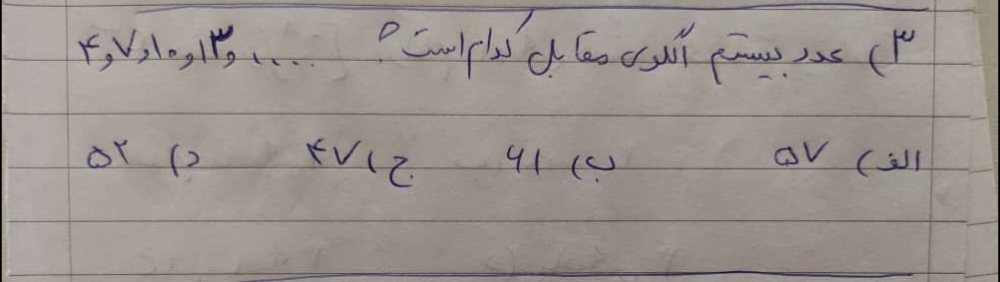 ۳) عدد بیستم الگوی مقابل کدام است؟ .... و۱۳و۱۰و۷و۴
الف) ۵۷ ب) ۶۱ ج) ۴۷ د) ۵۲